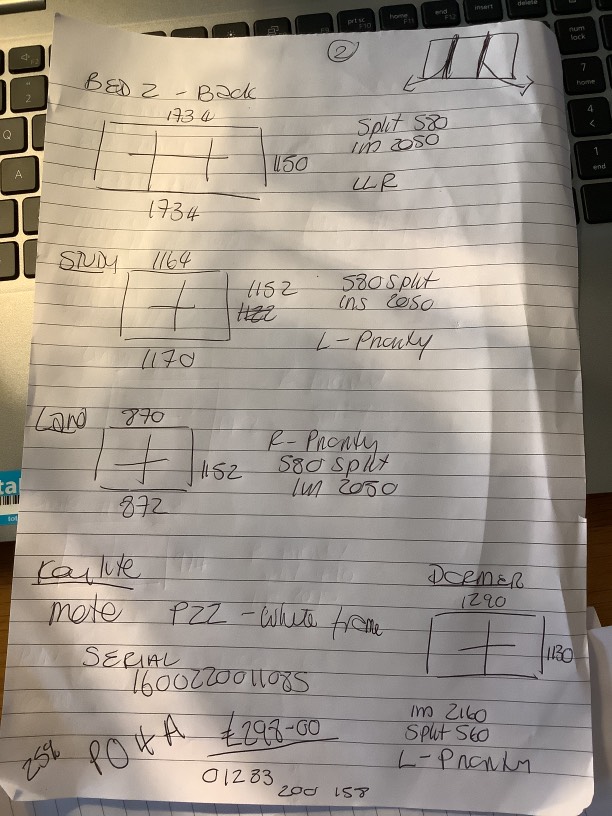 2
BED 2 - Back
1734
1150
1734
Split 580
im 2050
LLR
STUDY
1164
1152
1170
580 Split
ins 2050
L - Prority
Land
870
1152
872
R - Prority
580 split
im 2050
mote P22 - White frame
SERIAL
160022001108S
25%
PO & A
£298-00
01283
200 158
DORMER
1290
1130
im 2160
Split 560
L - Prority